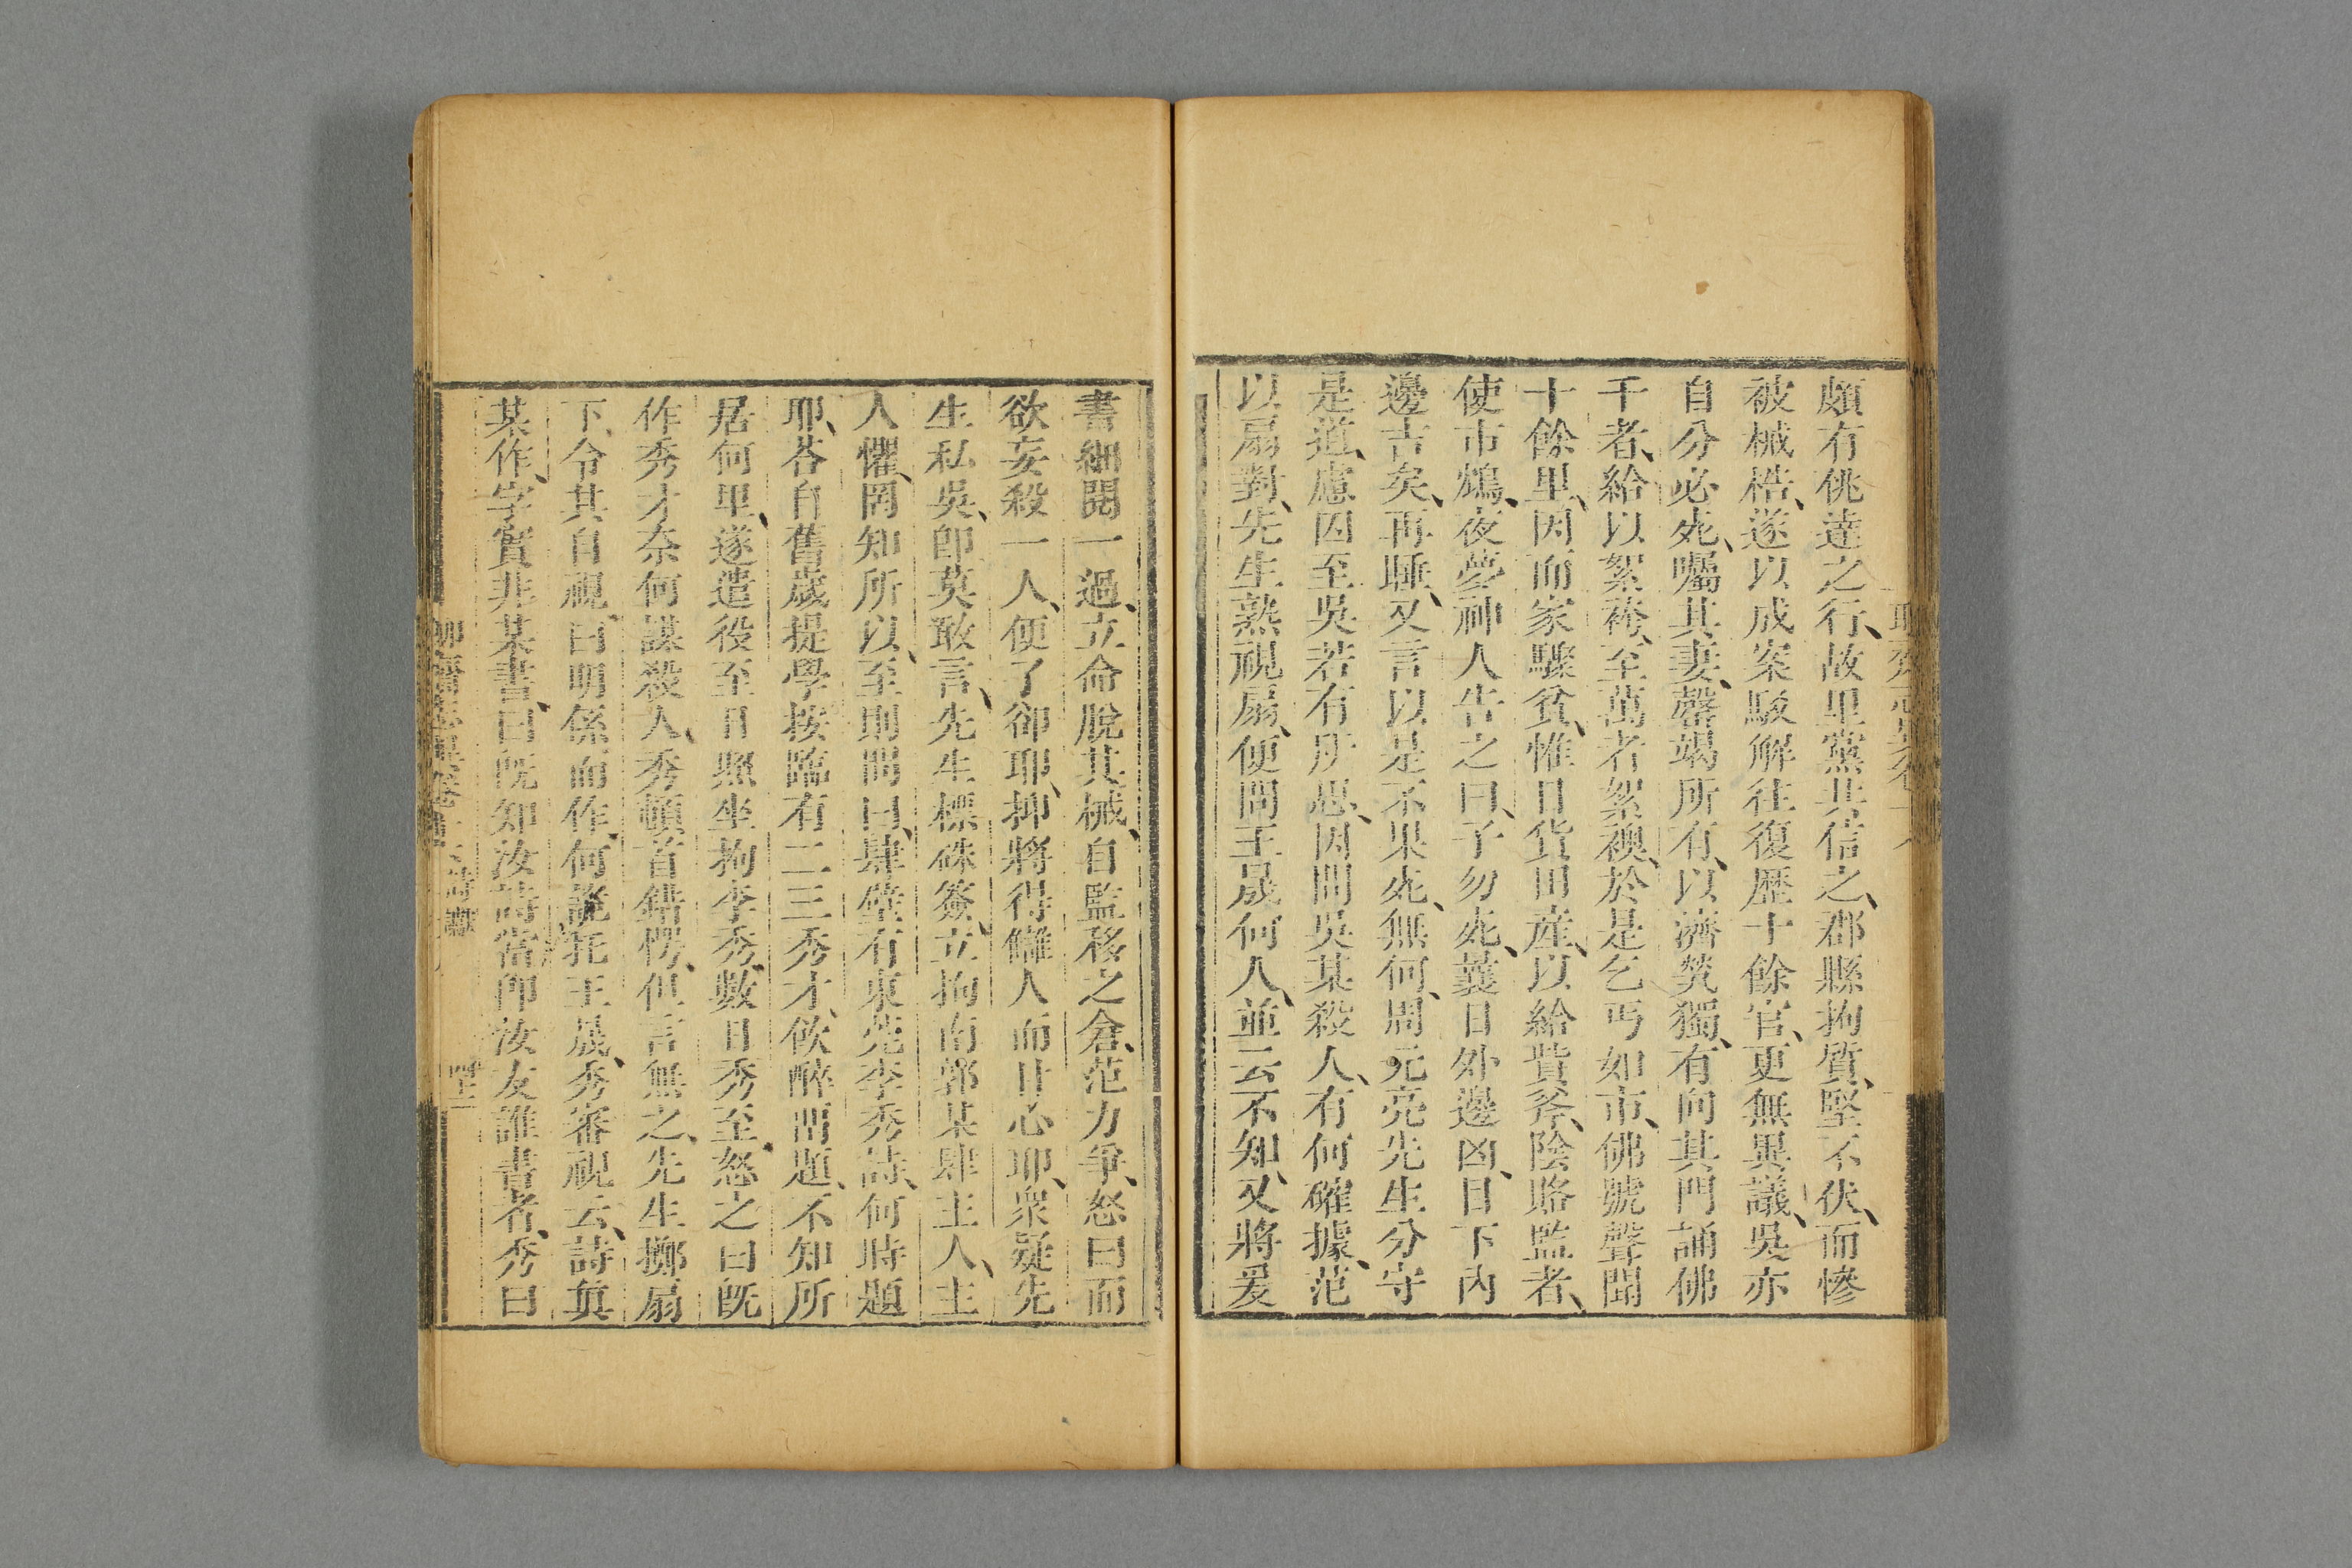 頗有佻達之行、故里黨共信之、郡縣拘質、堅不伏、而慘
被械梏、遂以成案、駁解往復、歷十餘官、更無異議、吳亦
自分必死、囑其妻、罄竭所有、以濟煢獨、有向其門誦佛
千者、給以絮袴、至萬者絮襖、於是乞丐如市、佛號聲聞
十餘里、因而家驟貧、惟日貨田產、以給貲斧、陰賂監者、
使市鴆、夜夢神人告之曰、子勿死、曩日外邊凶、目下內
邊吉矣、再睡、又言、以是不果死、無何、周元亮先生分守
是道、慮囚至吳、若有所思、因問吳某殺人、有何確據、范
以扇對、先生熟視扇、便問王晟何人、並云不知、又將爰
書細閱一過、立命脫其械、自監移之倉、范力爭、怒曰而
欲妄殺一人、便了卻耶、抑將得讎人而甘心耶、衆疑先
生私吳、卽莫敢言、先生標硃簽、立拘南郭某肆主人、主
人懼、罔知所以、至則問曰、肆壁有東莞李秀詩、何時題
耶、荅自舊歲提學按臨、有二三秀才、飲醉畱題、不知所
居何里、遂遣役至日照坐拘李秀、數日秀至、怒之曰旣
作秀才奈何謀殺人、秀頓首錯愕、但言無之、先生擲扇
下、令其自視、曰明係而作、何詭托王晟、秀審視云、詩眞
某作、字實非某書、曰旣知汝詩、當卽汝友誰書者、秀曰
詩讞